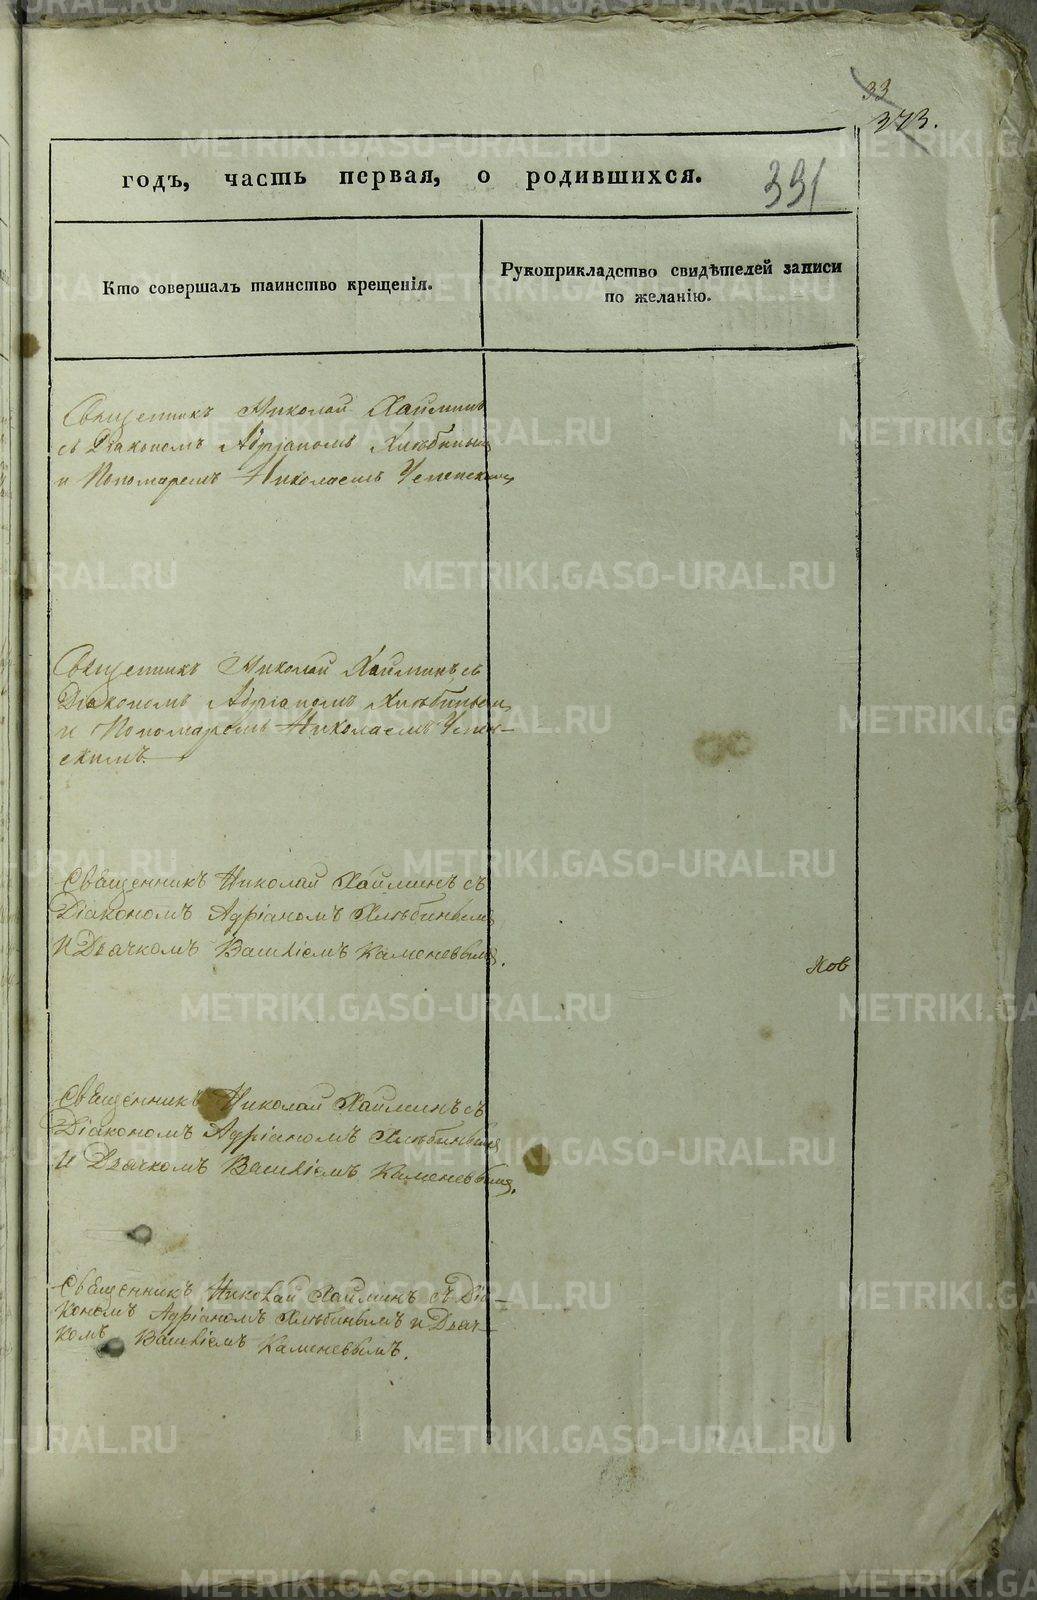 33
373.
годъ, часть первая, о родившихся.
391
Кто совершалъ таинство крещенія.
Рукоприкладство свидѣтелей записи
по желанію.
Священникъ Николай Хаймин
съ Діакономъ Адріаномъ Хлѣбиным
и Пономаремъ Николаемъ
Священникъ Николай Хайминъ съ
Діакономъ Адріаномъ Хлѣбиным
и Пономаремъ Николаемъ
скимъ
Священникъ Николай Хайминъ съ
Діакономъ Адріаномъ Хлѣбинымъ
и Дьячкомъ Василіемъ Каменевымъ.
Ков
Священникъ Николай Хайминъ съ
Діакономъ Адріаномъ Хлѣбинымъ
и Дьячкомъ Василіемъ Каменевымъ.
Священникъ Николай Хайминъ съ Діа-
кономъ Адріаномъ Хлѣбинымъ и Дьяч-
комъ Василіемъ Каменевымъ.
METRIKI.GASO-URAL.RU